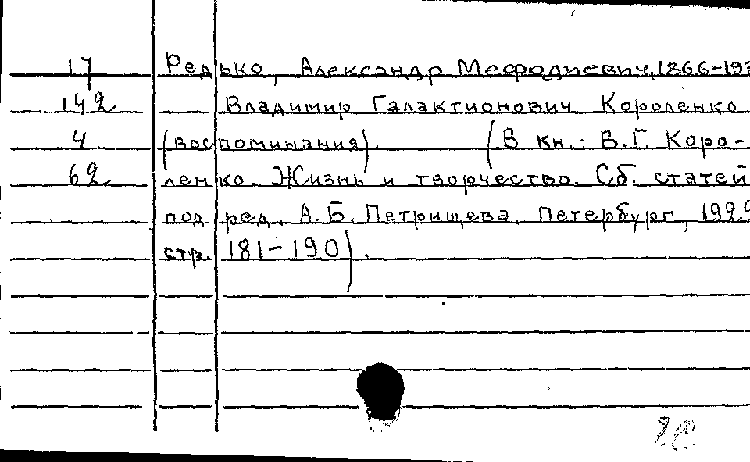 17 Редько, Александр Мефодиевич, 1866-193
142 Владимир Галактионович Короленко
4 (воспоминания). (В кн.: В.Г. Коро-
62 ленко. Жизнь и творчество. Сб. статей
под ред. А.Б. Петрищева. Петербург, 192
стр. 181-190).